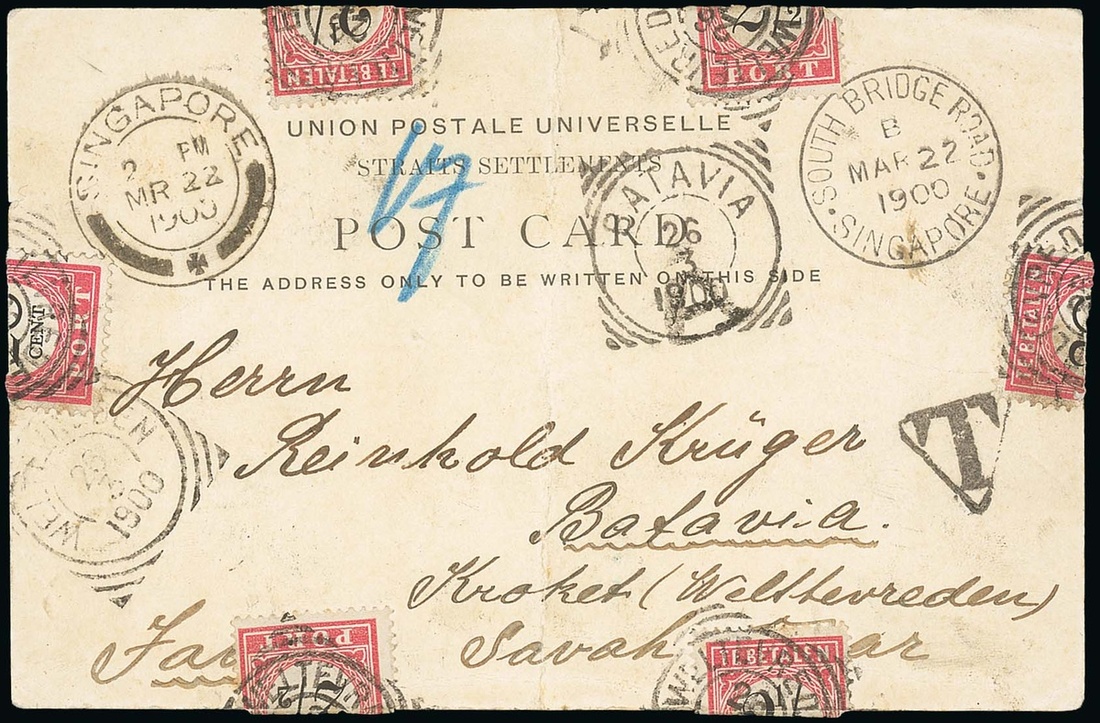 TE BETALEN
PORT
SINGAPORE
2 PM
MR 22
1900
UNION POSTALE UNIVERSELLE
STRAITS SETTLEMENTS
POST CARD
THE ADDRESS ONLY TO BE WRITTEN ON THIS SIDE
BATAVIA
26
3
1900
SOUTH BRIDGE ROAD
B
MAR 22
1900
SINGAPORE
CENT
PORT
TE BETALEN
T
1900
Herrn
Reinhold Krüger
Batavia.
Kroket (Weltevreden)
Savah
PORT
TE BETALEN